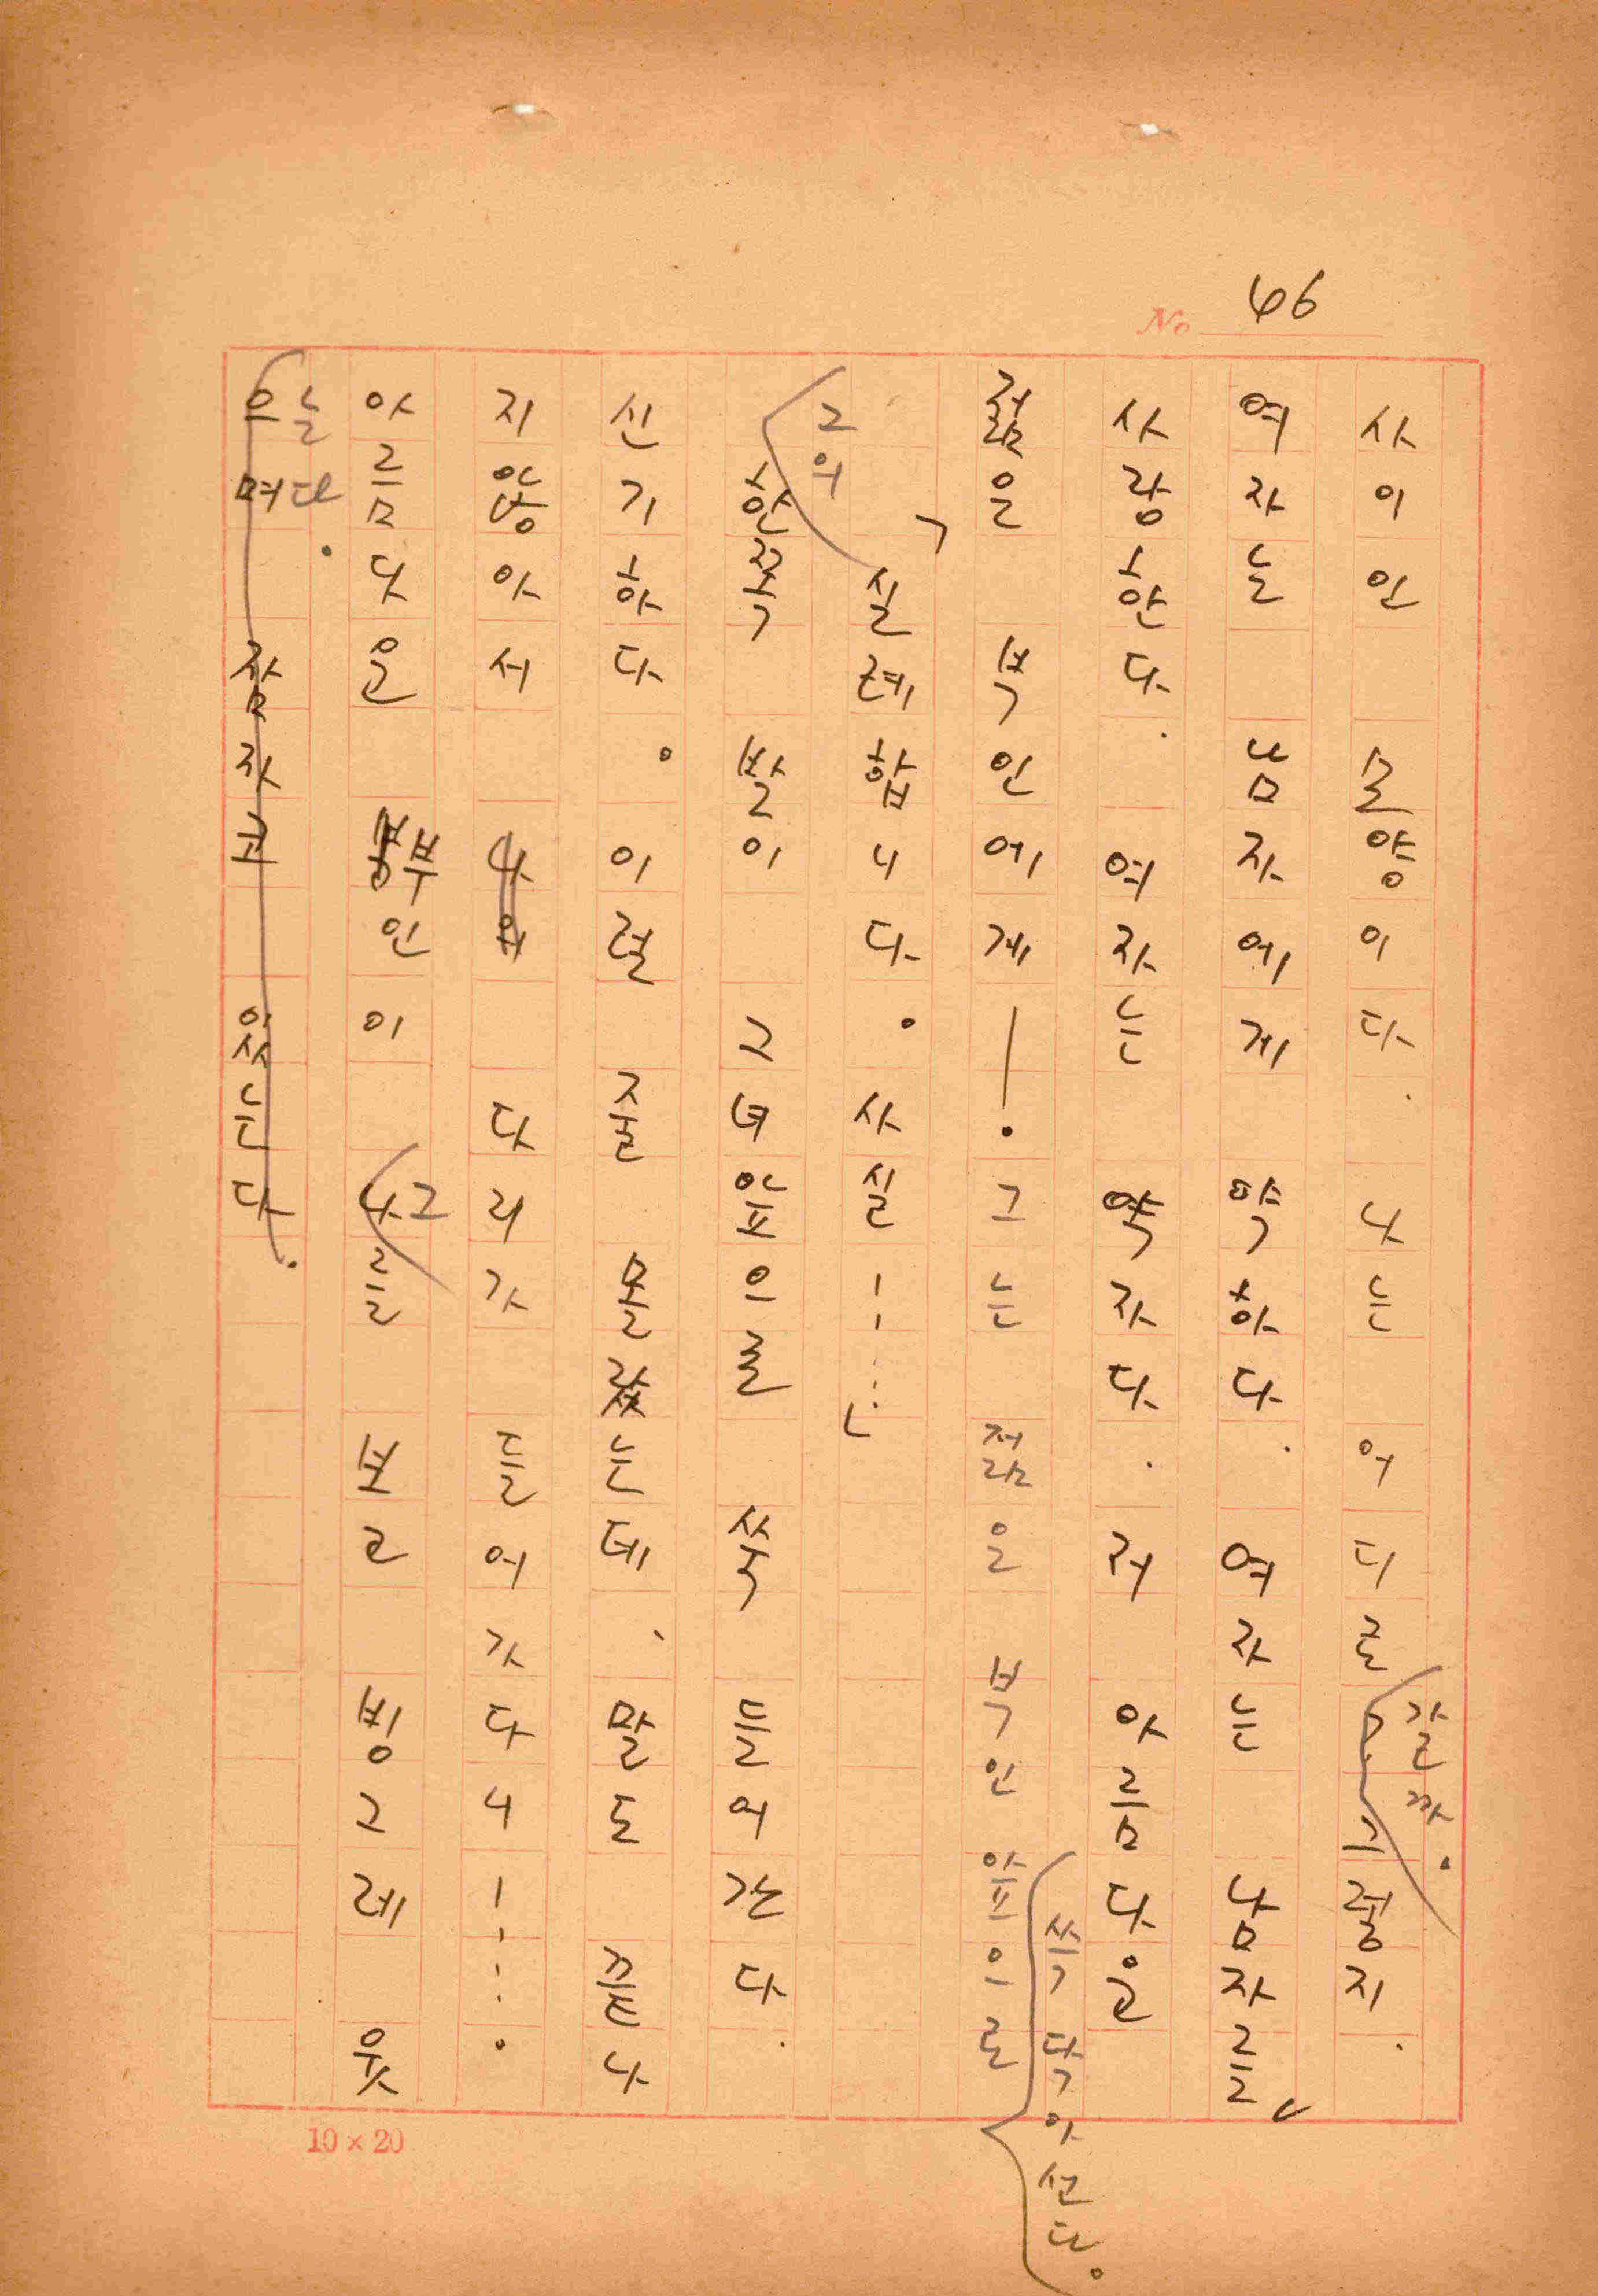 No 46
사이인 모양이다. 나는 어디로 갈까. 고렇지.
여자는 남자에게 약하다. 여자는 남자를
사랑한다. 여자는 약자다. 저 아름다운
젊은 부인에게 ―. 그는 젊은 부인 앞으로
쓱 닥아선다.
「실례합니다. 사실……」
그의 한쪽 발이 그녀 앞으로 쑥 들어간다.
신기하다. 이럴 줄 몰랐는데、 말도 끝나
지 않아서 나의 다리가 들어가다니…….
아름다운 부인이 나그를 보고 빙그레 웃
으며 잠자코 있는다.
는다.
10×20